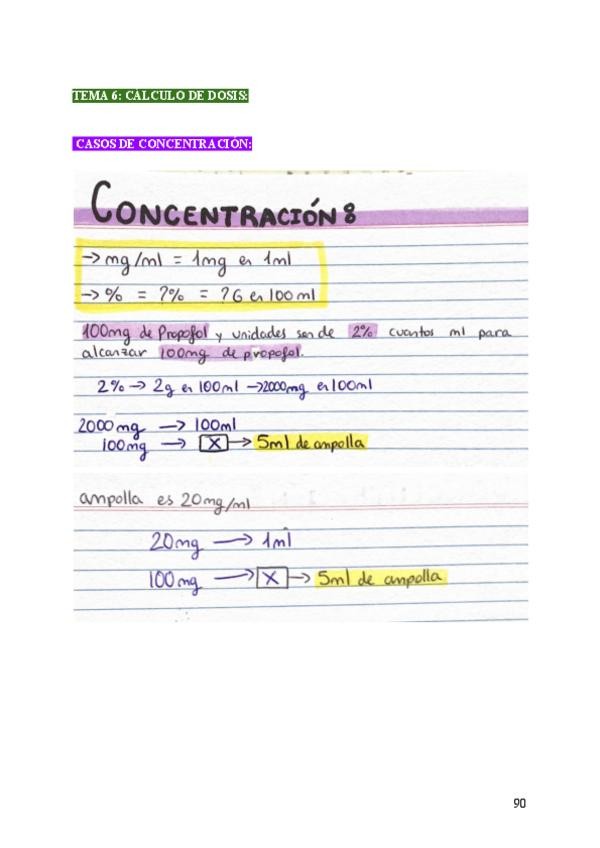 TEMA 6: CALCULO DE DOSIS:
CASOS DE CONCENTRACIÓN:
CONCENTRACIÓN:
→ mg/ml = 1mg en 1ml
→ % = ?% = ?G en 100ml
100mg de Propofol y unidades son de 2% cuantos ml para
alcanzar 100mg de propofol.
2% → 2g en 100ml → 2000mg en 100ml
2000mg → 100ml
100mg → X → 5ml de ampolla
ampolla es 20mg/ml
20mg → 1ml
100mg → X → 5ml de ampolla
90